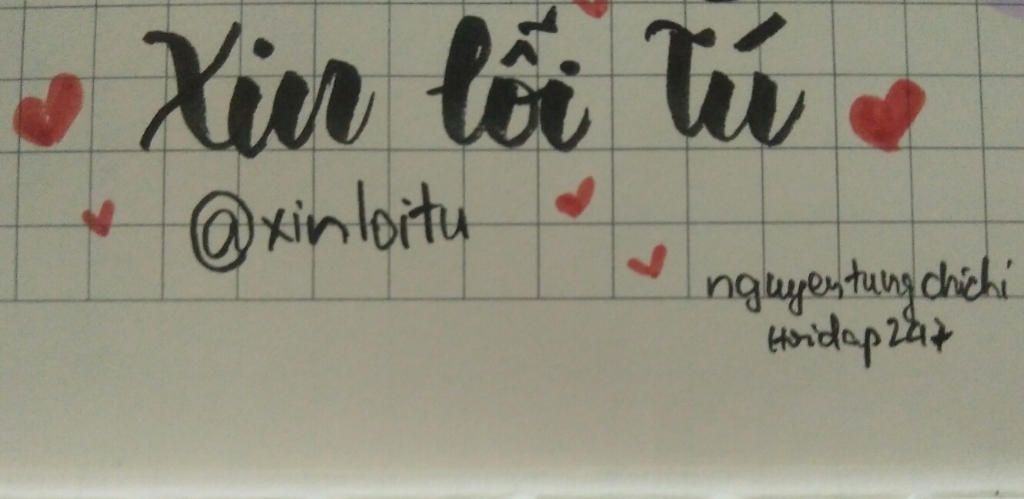 Xin lỗi Tú
@xinloitu
nguyentungchichi
Hoidap247